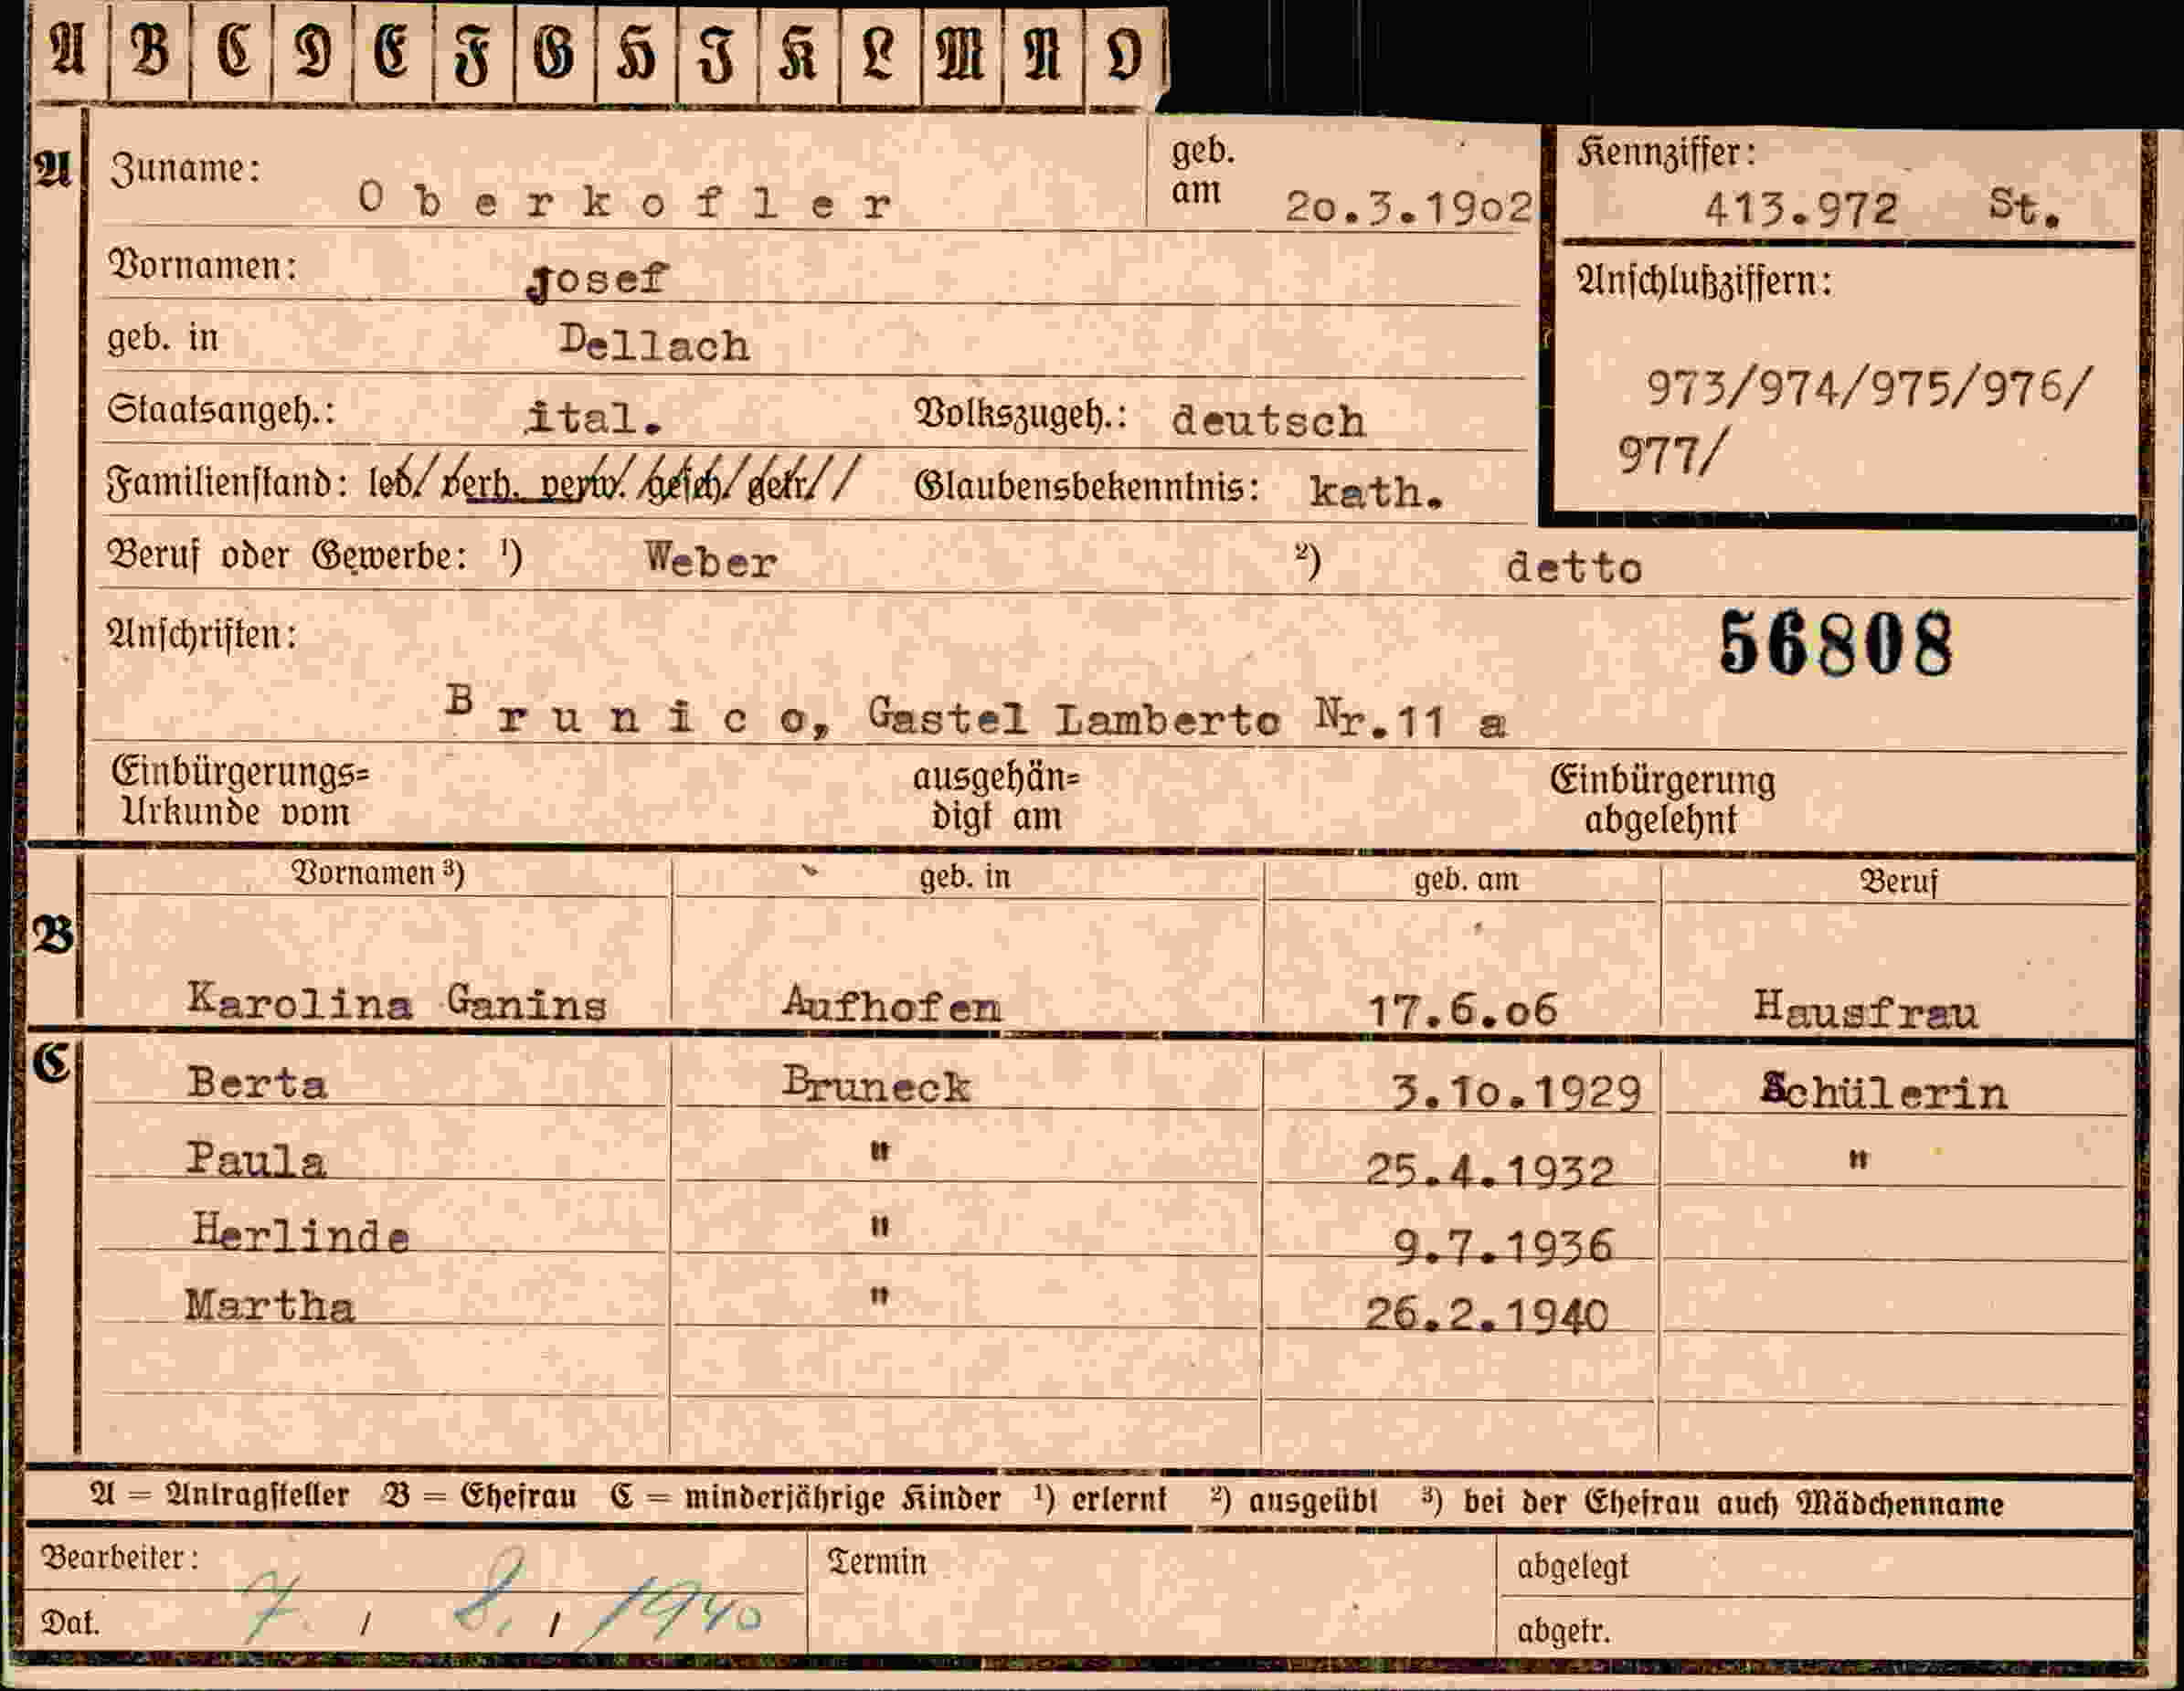 A B C D E F G H I K L M N O
A Zuname: Oberkofler geb. am 20.3.1902 Kennziffer: 413.972 St.
Vornamen: Josef Anschlußziffern:
geb. in Dellach 973/974/975/976/
Staatsangeh.: ital. Volkszugeh.: deutsch 977/
Familienstand: led/ verh. verw. /gesch/ getr// Glaubensbekenntnis: kath.
Beruf oder Gewerbe: ¹) Weber ²) detto
Anschriften: 56808
Brunico, Gastel Lamberto Nr.11 a
Einbürgerungs= ausgehän= Einbürgerung
Urkunde vom digt am abgelehnt
Vornamen ³) geb. in geb. am Beruf
B
Karolina Ganins Aufhofen 17.6.06 Hausfrau
C Berta Bruneck 3.10.1929 Schülerin
Paula " 25.4.1932 "
Herlinde " 9.7.1936
Martha " 26.2.1940
A = Antragsteller B = Ehefrau C = minderjährige Kinder ¹) erlernt ²) ausgeübt ³) bei der Ehefrau auch Mädchenname
Bearbeiter: Termin abgelegt
Dat. 7. / 8. / 1940 abgetr.